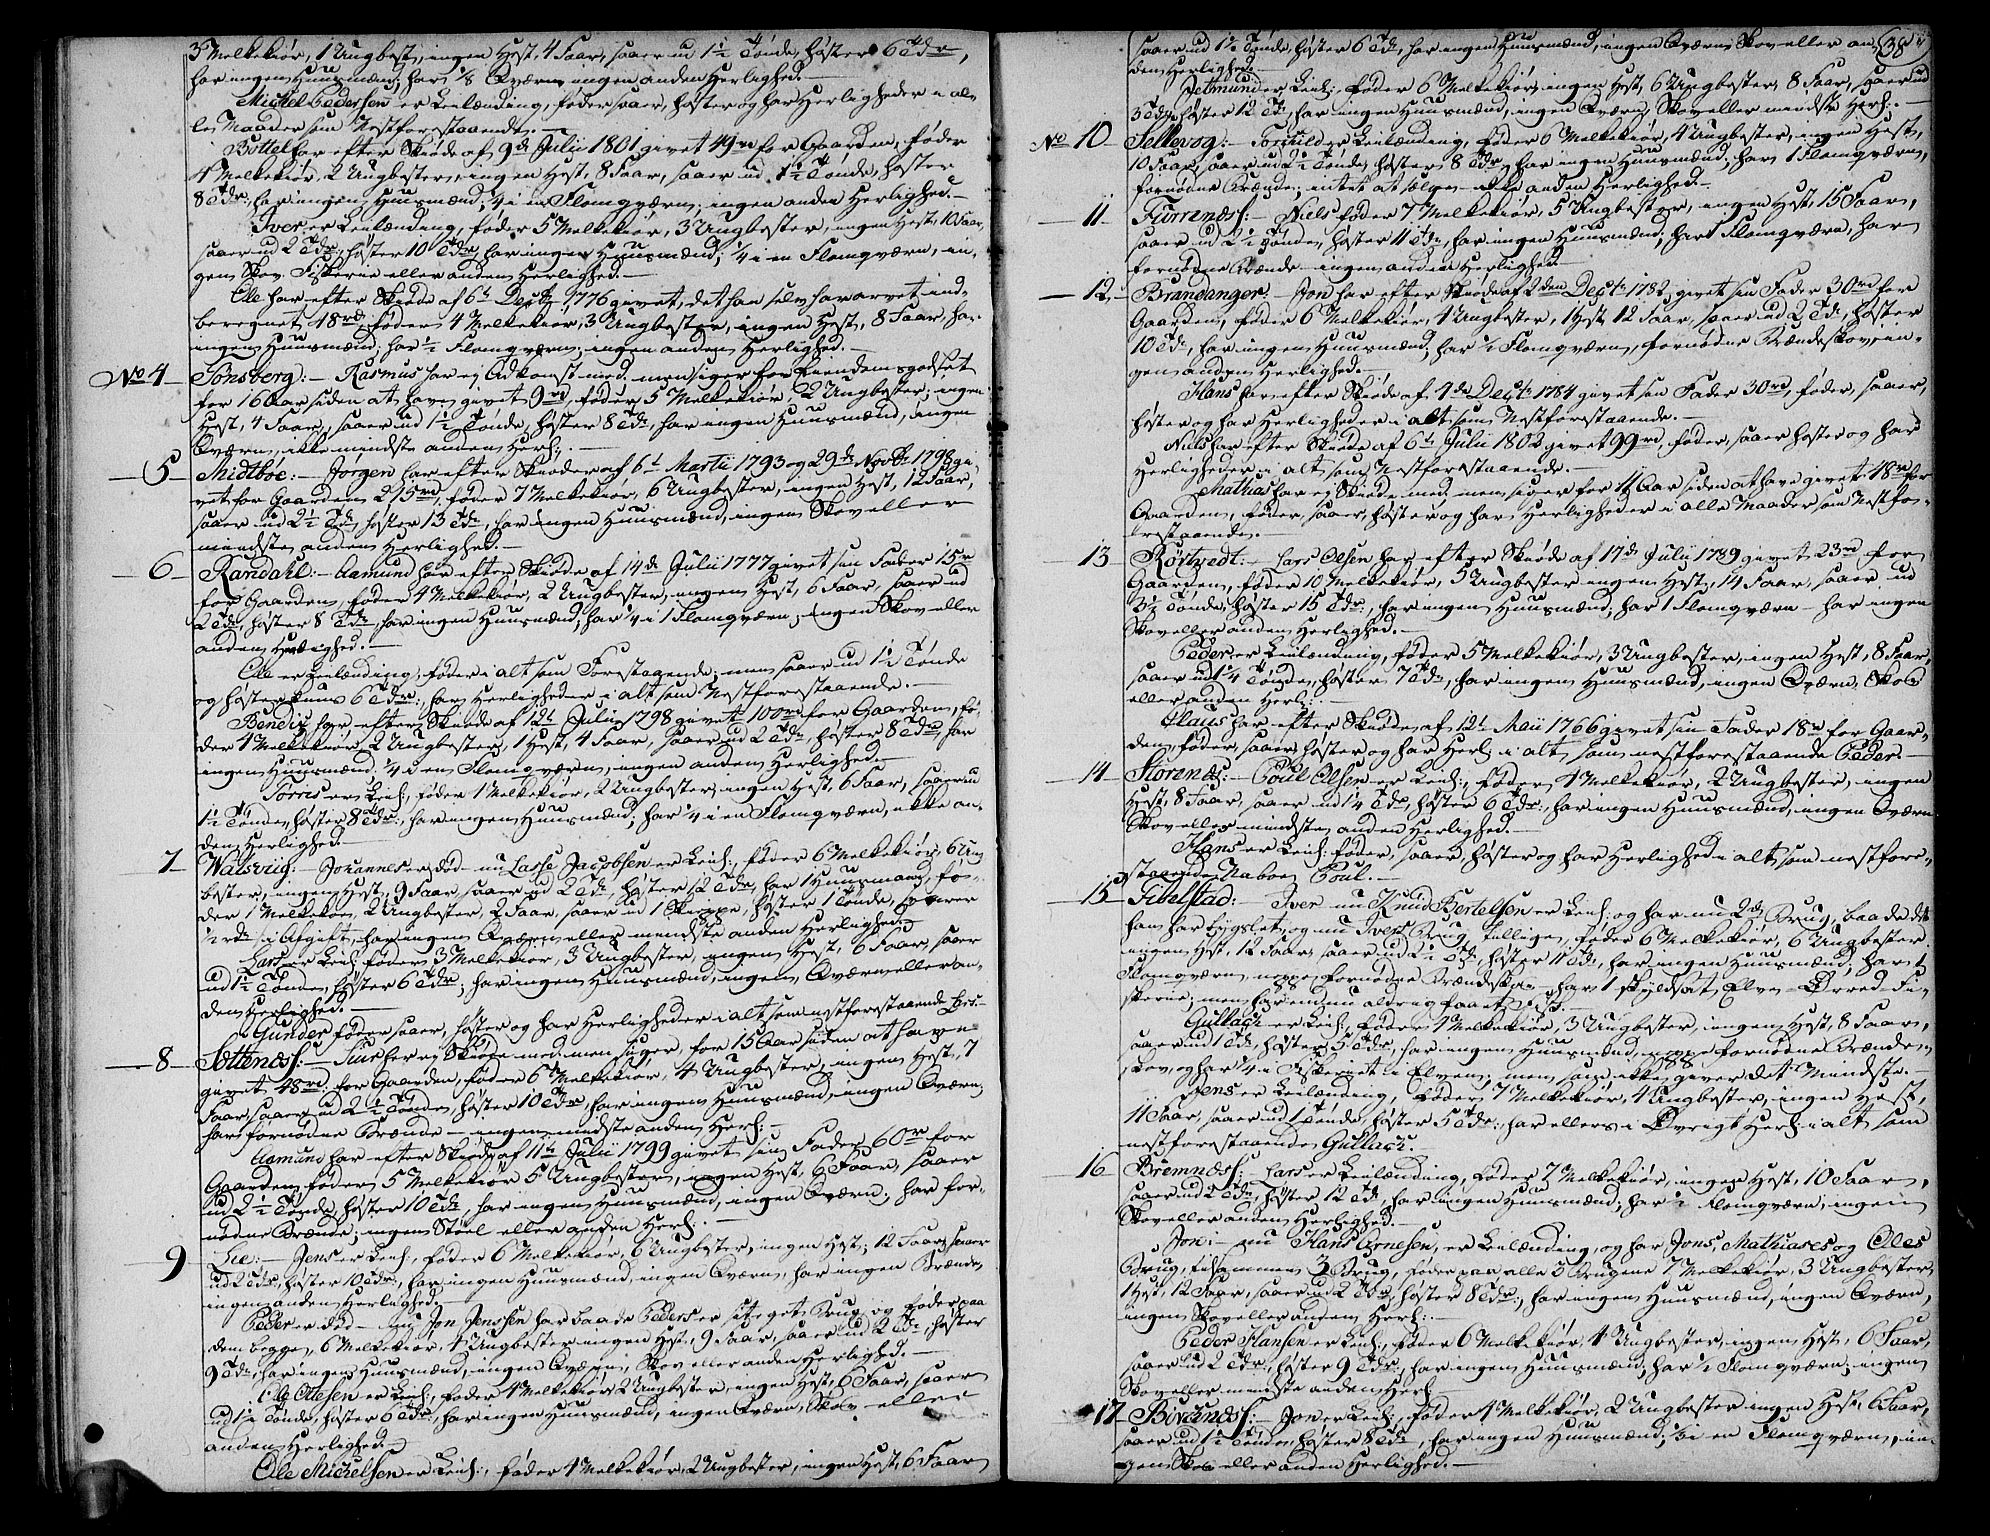 3 Melkekiør, 1 Ungbest, ingen Hest, 4 Faar, saaer ud 1½ Tønde, høster 6 Tdr,
har ingen Huusmænd; har ⅛ Qværn ingen anden Herlighed. –
Michel Pedersen er Leilænding, føder, saaer, høster og har Herligheder i al-
le Maader som Nestforestaaende. –
Bottel har efter Skiøde af 9de Julii 1801 givet 49rd for Gaarden, føder
4 Melkekiør, 2 Ungbester, ingen Hest, 8 Faar, saaer ud 1½ Tønde, høster
8 Tdr, har ingen Huusmænd, ¼ i en Flomqværn; ingen anden Herlighed. –
Iver er Leilænding, føder 5 Melkekiør, 3 Ungbester, ingen Hest, 10 Faar,
saaer ud 2 Tdr, høster 10 Tdr, har ingen Huusmænd; ¼ i en Flomqværn, in-
gen Skov, Fiskerie eller anden Herlighed. –
Ole har efter Skiøde af 6t Decbr 1776 givet, det han selv har arvet ind-
beregnet 48rd føder 4 Melkekiør, 3 Ungbester, ingen Hest, 8 Faar, har
ingen Huusmænd; har ½ Flomqværn; ingen anden Herlighed. –
No 4 – Tønsberg: – Rasmus har ej Adkomst med men siger for Eiendomsgodset
for 16 Aar siden at have givet 9rd, føder 5 Melkekiør, 2 Ungbester; ingen
Hest, 4 Faar, saaer ud 1½ Tønde, høster 8 Tdr, har ingen Huusmænd, ingen
Qværn, ikke mindste anden Herl: –
5 – Midtbøe: – Jørgen har efter Skiøder af 6t Martii 1793 og 29de Novbr 1798 gi-
vet for Gaarden 215rd, føder 7 Melkekiør, 6 Ungbester, ingen Hest, 12 Faar,
saaer ud 2½ Tdr, høster 13 Tdr, har ingen Huusmænd, ingen Skov eller
mindste anden Herlighed. –
6 – Randahl: – Aamund har efter Skiøde af 14de Julii 1777 givet sin Fader 15rd
for Gaarden, føder 4 Melkekiør, 2 Ungbester, ingen Hest, 6 Faar, saaer ud
2 Tdr, høster 8 Tdr, har ingen Huusmænd; har ¼ i 1 Flomqværn; ingen Skov eller
anden Herlighed. –
Ole er Leilænding, føder i alt som Forestaaende; men saaer ud 1½ Tønde
og høster kuns 6 Tdr:, har Herligheder i alt som Nestforestaaende. –
Bendix har efter Skiøde af 12t Julii 1798 givet 100rd for Gaarden, fø-
der 4 Melkekiør, 2 Ungbester, 1 Hest, 4 Faar, saaer ud 2 Tdr, høster 8 Tdr, har
ingen Huusmænd, ¼ i en Flomqværn, ingen anden Herlighed. –
Torris er Leil:, føder 4 Melkekiør, 2 Ungbester, ingen Hest, 6 Faar, saaer ud
1½ Tønde, høster 8 Tdr:, har ingen Huusmænd; har ¼ i en Flomqværn, ikke an-
den Herlighed. –
7 – Walsvig: – Johannes er død – nu Lasse Jacobsen er Leil:, føder 6 Melkekiør, 6 Ung-
bester, ingen Hest, 9 Faar, saaer ud 2 Tdr, høster 12 Tdr, har 1 Huusmand, fø-
der 1 Melkekoe, 2 Ungbester, 2 Faar, saaer ud 1 Skieppe, høster 1 Tønde, svarer
½ rdr i Afgift, har ingen Qværn eller mindste anden Herlighed. –
Lars er Leil: føder 3 Melkekiør, 3 Ungbester, ingen Hest, 6 Faar, saaer
ud 1½ Tønde, høster 6 Tdr; har ingen Huusmænd, ingen Qværn eller an-
den Herlighed. –
Gunder føder, saaer, høster og har Herligheder i alt som nestforestaaende Lars. –
8 – Søttenæs: – Siur har ej Skiøde med men siger, for 15 Aar siden at have
givet 48rd. for Gaarden, føder 6 Melkekiør, 4 Ungbester, ingen Hest, 7
Faar, saaer ud 2½ Tønde, høster 10 Tdr, har ingen Huusmænd, ingen Qværn;
har fornødne Brænde – ingen mindste anden Herl: –
Aamund har efter Skiøde af 11te Julii 1799 givet sin Fader 60rd for
Gaarden, føder 5 Melkekiør 5 Ungbester, ingen Hest, 6 Faar, saaer
ud 2½ Tønde, høster 10 Tdr, har ingen Huusmænd, ingen Qværn; har for-
nødne Brænde; ingen Støel eller anden Herl:. –
9 – Lie: – Jens er Leil:, føder 6 Melkekiør, 6 Ungbester, ingen Hest, 12 Faar, saaer
ud 2 Tdr, høster 10 Tdr:, har ingen Huusmænd, ingen Qværn, har ingen Brænde,
ingen anden Herlighed. –
Peder er død – nu Jon Jenssen har baade Peders og sit eget Brug, og føder paa
dem begge, 6 Melkekiør, 4 Ungbester ingen Hest, 9 Faar, saaer ud 2 Tdr, høster
9 Tdr, har ingen Huusmænd, ingen Qværn, Skov eller anden Herlighed. –
Ole Olesen er Leil:, føder 4 Melkekiør, 2 Ungbester, ingen Hest, 6 Faar, saaer
ud 1½ Tønde, høster 6 Tdr, har ingen Huusmænd, ingen Qværn, Skov eller
anden Herlighed. –
Ole Michelsen er Leil:, føder 4 Melkekiør, 2 Ungbester, ingen Hest, 6 Faar
38
saaer ud 1½ Tønde, høster 6 Tdr, har ingen Huusmænd, ingen Qværn Skov eller an-
den Herlighed. –
Aetmund er Leil:, føder 6 Melkekiør, ingen Hest, 6 Ungbester, 8 Faar, saaer ud
3 Tdr, høster 12 Tdr, har ingen Huusmænd, ingen Qværn, Skov eller mindste Herl:. –
No 10 – Sellevog: – Torchild er Leilænding, føder 6 Melkekiør, 4 Ungbester, ingen Hest,
10 Faar, saaer ud 2½ Tønde, høster 8 Tdr, har ingen Huusmænd; har 1 Flomqværn,
fornødne Brænde; intet at sælge – ikke anden Herlighed. –
11 – Furrenæs: – Niels føder 7 Melkekiør, 5 Ungbester, ingen Hest, 15 Faar,
saaer ud 2½ Tønde, høster 11 Tdr, har ingen Huusmænd; har 1 Flomqværn, har
fornødne Brænde – ingen anden Herlighed. –
12 – Brandanger: – Jon har efter Skiøde af 2den Decbr 1782, givet sin Fader 30rd for
Gaarden, føder 6 Melkekiør, 4 Ungbester, 1 Hest, 12 Faar, saaer ud 2 Tdr, høster
10 Tdr, har ingen Huusmænd; har ½ Flomqværn, fornødne Brændeskov, in-
gen anden Herlighed. –
Hans har efter Skiøde af 4de Decbr 1784 givet sin Fader 30rd, føder, saaer,
høster og har Herligheder i alt som Nestforestaaende. –
Niels har efter Skiøde af 6t Julii 1802 givet 99rd, føder, saaer høster og har
Herligheder i alt som Nestforestaaende. –
Mathias har ej Skiøde med, men siger for 11 Aar siden at have givet 48rd for
Gaarden, føder, saaer, høster og har Herligheder i alle Maader som Nestfo-
restaaende. –
13 – Røttvedt: – Lars Olsen har efter Skiøde af 17de Julii 1789 givet 23rd for
Gaarden, føder 10 Melkekiør, 5 Ungbester ingen Hest, 14 Faar, saaer ud
3½ Tønde, høster 15 Tdr:, har ingen Huusmænd; har 1 Flomqværn – har ingen
Skov eller anden Herlighed. –
Peder er Leilænding, føder 5 Melkekiør, 3 Ungbester, ingen Hest, 8 Faar,
saaer ud 1¼ Tønde, høster 7 Tdr, har ingen Huusmænd, ingen Qværn, Skov
eller anden Herl:. –
Claus har efter Skiøde, af 12t Maii 1766 givet sin Fader 18rd for Gaar-
den, føder, saaer, høster og har Herl: i alt som nestforestaaende Peder. –
14 – Storenæs: – Poul Olsen er Leil:, føder 4 Melkekiør, 2 Ungbester, ingen
Hest, 8 Faar, saaer ud 1¼ Tdr, høster 6 Tdr:, har ingen Huusmænd, ingen Qværn
Skov eller mindste anden Herlighed. –
Hans er Leil: føder, saaer, høster og har Herlighed i alt som nestfore-
staaende Naboe Poul. –
15 – Tibelstad: – Iver nu Knud Bertelsen er Leil: og har nu 2de Brug, baade det
han har bygslet, og nu Ivers Brug tillige, føder 6 Melkekiør, 6 Ungbester
ingen Hest, 12 Faar, saaer ud 2½ Tdr, høster 11 Tdr, har ingen Huusmænd; har 1
Flomqværn, neppe fornødne Brændeskov – har 1 skyldsat Elve-Ørred-Fi-
skerie; men har endnu aldrig faaet Fisk. –
Gullach er Leil:, føder 4 Melkekiør, 3 Ungbester, ingen Hest, 8 Faar,
saaer ud 1 Tdr, høster 5 Tdr, har ingen Huusmænd, neppe fornødne Brænde-
skov, og har ¼ i Fiskeriet i Elven; men som ikke giver det Mindste. –
Jens er Leilænding, føder 7 Melkekiør, 4 Ungbester, ingen Hest,
11 Faar, saaer ud 1 Tønde, høster 5 Tdr:, har ellers i Øvrigt Herl: i alt som
nestforestaaende Gullach. –
16 – Bremnæs: – Lars er Leilænding, føder 7 Melkekiør, ingen Hest, 10 Faar,
saaer ud 2 Tdr, høster 12 Tdr, har ingen Huusmænd; har ½ Flomqværn, ingen
Skov eller anden Herlighed. –
Jon: – nu Hans Arnesen, er Leilænding, og har Jons, Mathiases og Oles
Brug, tilsammen 3 Brug, føder paa alle 3 Brugene 7 Melkekiør, 3 Ungbester
1 Hest, 12 Faar, saaer ud 2 Tdr, høster 8 Tdr:, har ingen Huusmænd, ingen Qværn,
ingen Skov eller anden Herl:. –
Peder Hansen er Leil:, føder 6 Melkekiør, 4 Ungbester, ingen Hest, 6 Faar,
saaer ud 2 Tdr, høster 9 Tdr, har ingen Huusmænd; har ½ Flomqværn; ingen
Skov eller mindste anden Herl: –
17 – Birkenæs: – Jon er Leil:, føder 4 Melkekiør, 2 Ungbester ingen Hest, 6 Faar,
saaer ud 1½ Tønde, høster 8 Tdr, har ingen Huusmænd, ⅓ i en Flomqværn, in-
gen Skov eller anden Herlighed. –